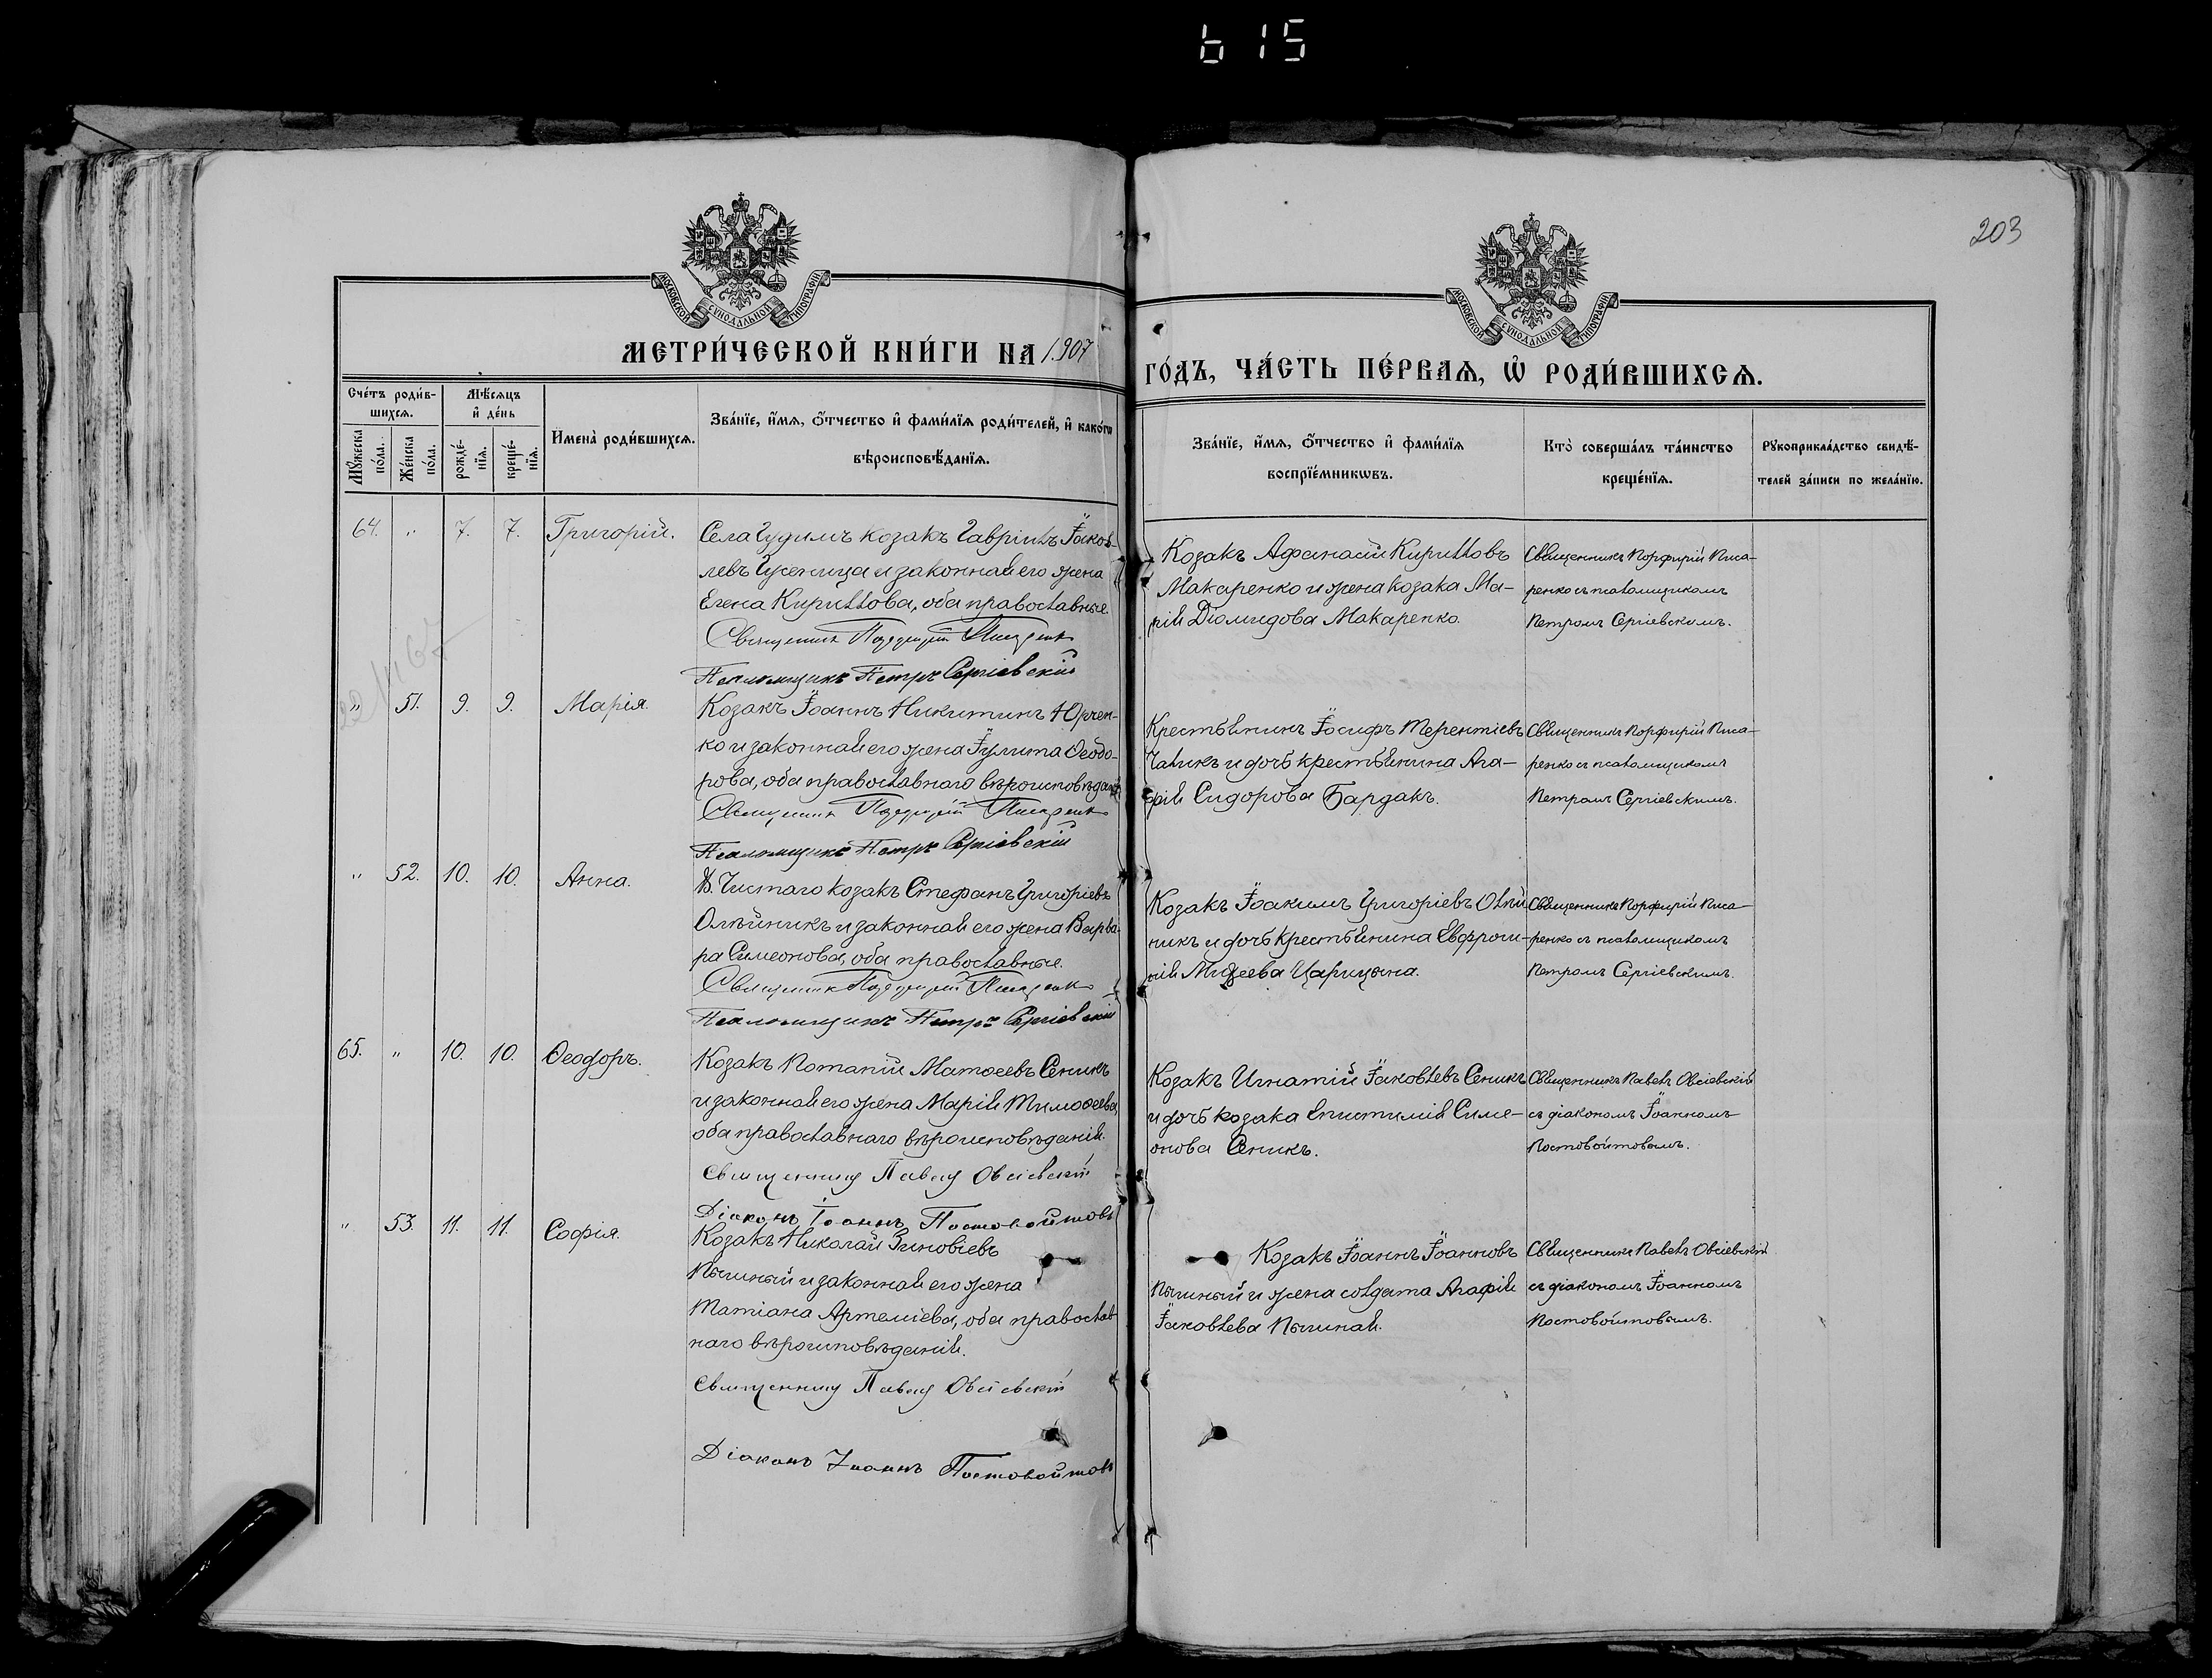 615
203
МОСКОВСКОЙ СѴНОДАЛЬНОЙ ТИПОГРАФІИ
МОСКОВСКОЙ СѴНОДАЛЬНОЙ ТИПОГРАФІИ
МЕТРИ́ЧЕСКОЙ КНИ́ГИ НА 1907
ГО́ДЪ, ЧА́СТЬ ПЕ́РВАѦ, Ѡ҆ РОДИ́ВШИХСѦ.
Сче́тъ роди́в-
шихсѧ.
Мꙋ́жеска
по́ла.
Же́нска
по́ла.
Мѣ́сѧцъ
и҆ де́нь
рожде́-
нїѧ.
креще́-
нїѧ.
И҆мена̀ роди́вшихсѧ.
Зва́нїе, и҆́мѧ, ѻ҆́тчество и҆ фами́лїѧ роди́телей, и҆ како́гѡ
вѣроисповѣ́данїѧ.
Зва́нїе, и҆́мѧ, ѻ҆́тчество и҆ фами́лїѧ
воспрїе́мникѡвъ.
Кто̀ соверша́лъ та́инство
креще́нїѧ.
Рꙋкоприкла́дство свидѣ́-
телей за́писи по жела́нїю.
64. " 7. 7. Григорій.
Села Гудимъ козакъ Гавріилъ Іаков-
левъ Гусеница и законная его жена
Елена Кириллова, оба православные.
Священникъ Порфирій Писаренко
Псаломщикъ Петръ Сергіевскій
Козакъ Афанасій Кирилловъ
Макаренко и жена козака Ма-
рія Діомидова Макаренко.
Священникъ Порфирій Писа-
ренко съ псаломщикомъ
Петромъ Сергіевскимъ.
" 51. 9. 9. Марія.
Козакъ Іоаннъ Никитинъ Юрчен-
ко и законная его жена Іулита Ѳеодо-
рова, оба православнаго вѣроисповѣданія
Священникъ Порфирій Писаренко
Псаломщикъ Петръ Сергіевскій
Крестьянинъ Іосифъ Терентіевъ
Чаликъ и дочь крестьянина Ага-
фія Сидорова Бардакъ.
Священникъ Порфирій Писа-
ренко съ псаломщикомъ
Петромъ Сергіевскимъ.
" 52. 10. 10. Анна.
Д. Чистаго козакъ Стефанъ Григоріевъ
Олѣйникъ и законная его жена Варва-
ра Симеонова, оба православные.
Священникъ Порфирій Писаренко
Псаломщикъ Петръ Сергіевскій
Козакъ Іоакимъ Григоріевъ Олѣй-
никъ и дочь крестьянина Евфроси-
нія Мидеева Царицына.
Священникъ Порфирій Писа-
ренко съ псаломщикомъ
Петромъ Сергіевскимъ.
65. " 10. 10. Ѳеодоръ.
Козакъ Потапій Матѳеевъ Сеникъ
и законная его жена Марія Тимоѳеева,
оба православнаго вѣроисповѣданія.
Священникъ Павелъ Овсіевскій
Діаконъ Іоаннъ Постовойтовъ
Козакъ Игнатій Іаковлевъ Сеникъ
и дочь козака Епистимія Симе-
онова Сеникъ.
Священникъ Павелъ Овсіевскій
съ діакономъ Іоанномъ
Постовойтовымъ.
" 53. 11. 11. Софія.
Козакъ Николай Зиновіевъ
Пычиный и законная его жена
Татіана Артеміева, оба православ-
наго вѣроисповѣданія.
Священникъ Павелъ Овсіевскій
Діаконъ Іоаннъ Постовойтовъ
Козакъ Іоаннъ Іоанновъ
Пычиный и жена солдата Агафія
Іаковлева Пычиная.
Священникъ Павелъ Овсіевскій
съ діакономъ Іоанномъ
Постовойтовымъ.